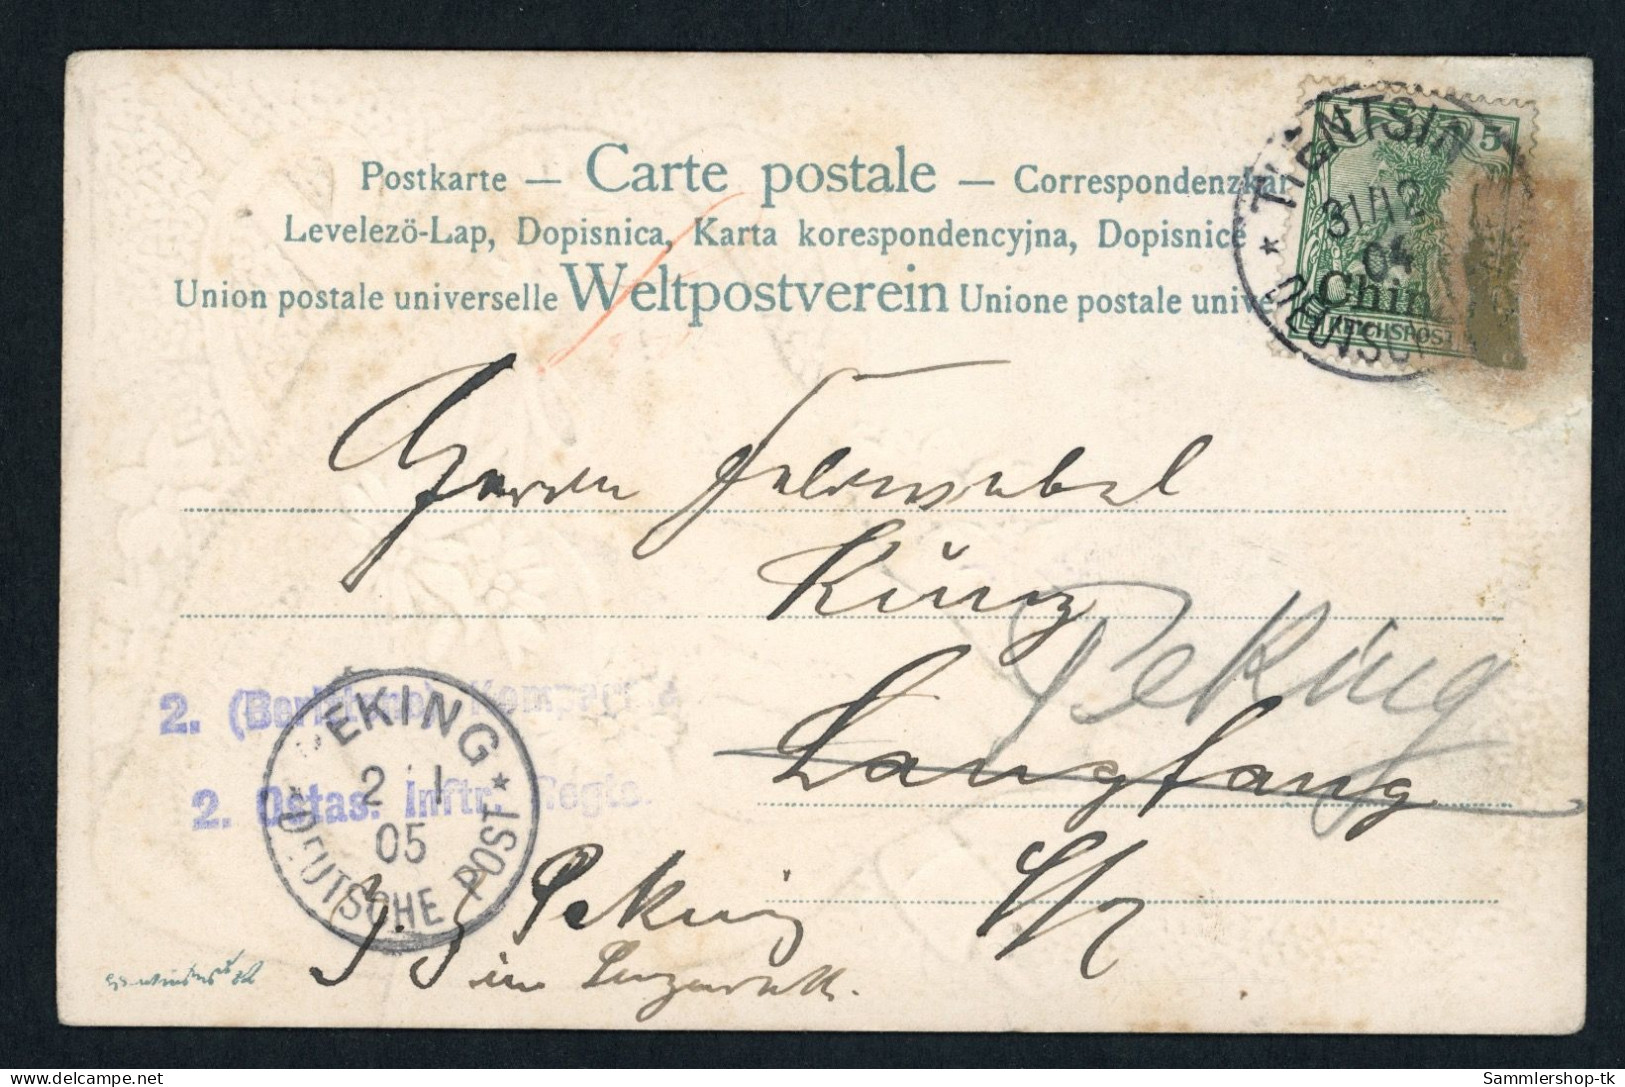 Postkarte — Carte postale — Correspondenzkar
Levelezö-Lap, Dopisnica, Karta korespondencyjna, Dopisnice
Union postale universelle Weltpostverein Unione postale unive
TIENTSIN
31/12
04
DEUTSCH
5
China
REICHSPOST
Herrn Feldwebel
Künz
Peking
Langfang
2. (Berittene) Kompagnie
2. Ostas. Inftr. Regts.
PEKING
2 1
05
DEUTSCHE POST
z. Z. Peking
im Lazarett.
delcampe.net
Sammlershop-tk